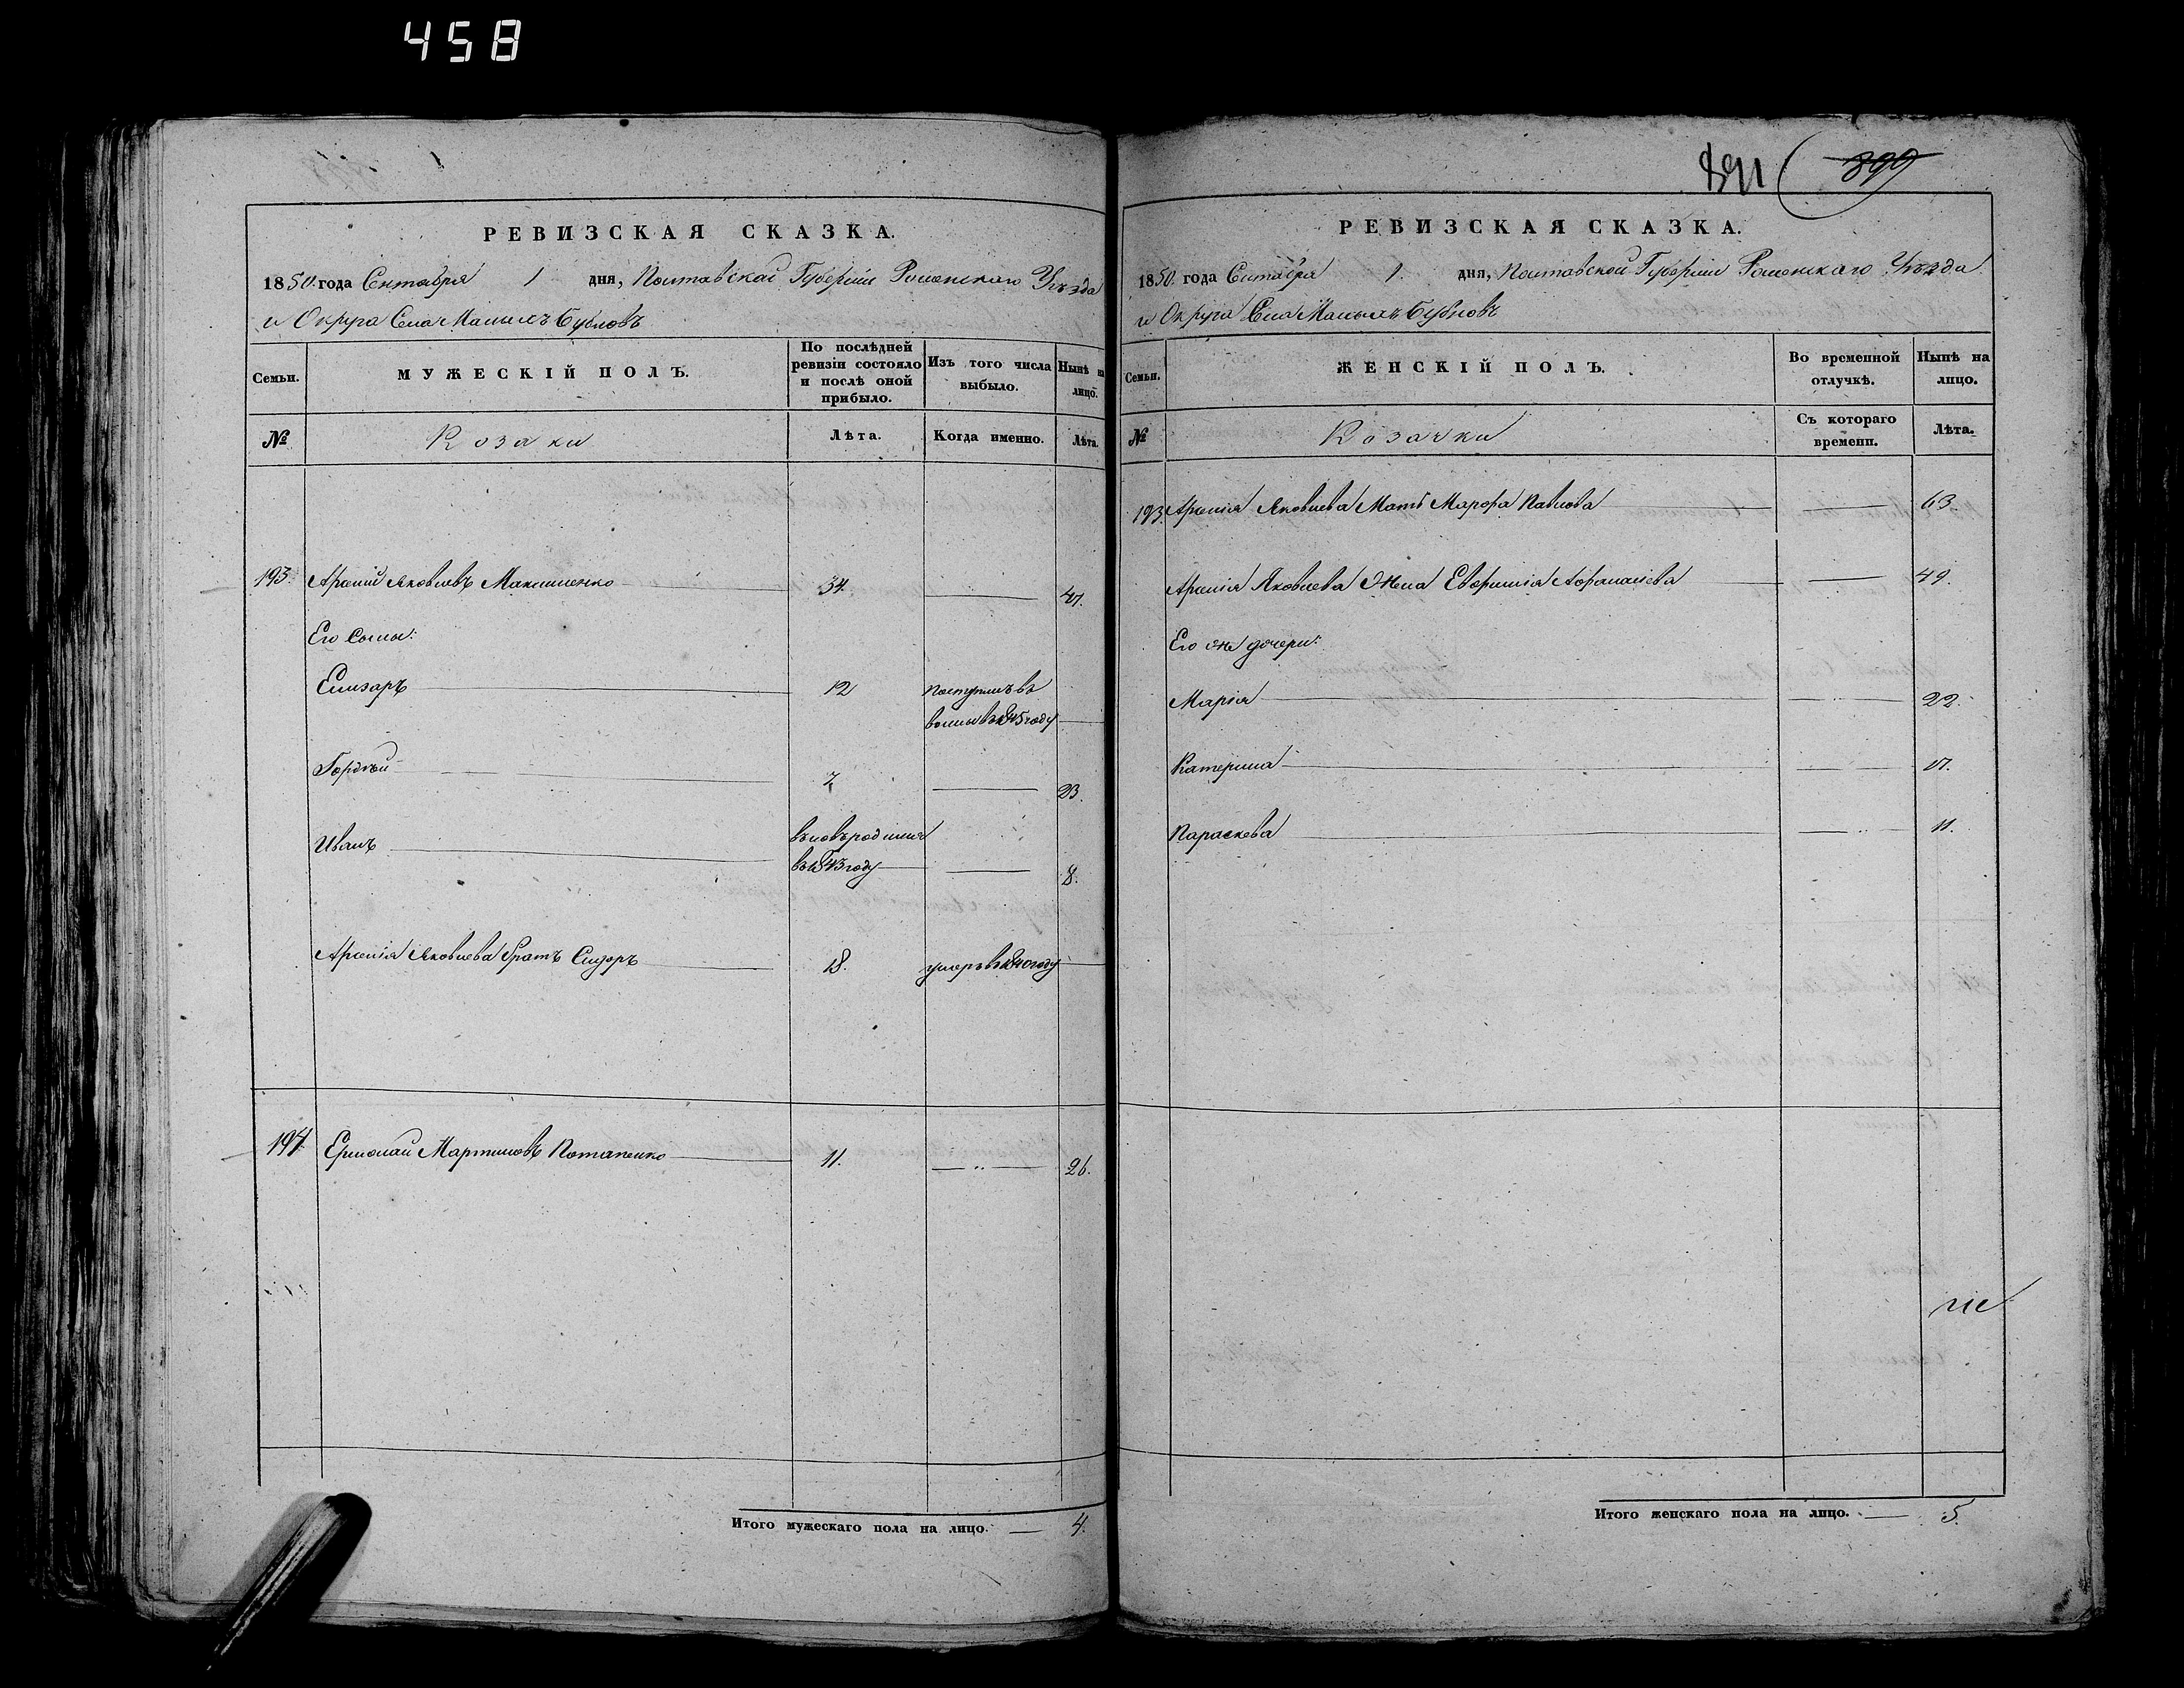 458
РЕВИЗСКАЯ СКАЗКА.
1850. года Сентября 1 дня, Полтавской Губернии Роменского Уѣзда
и Округа Села Малыхъ Бубновъ
Семьи.
МУЖЕСКІЙ ПОЛЪ.
По послѣдней ревизіи состояло и послѣ оной прибыло.
Изъ того числа выбыло.
Нынѣ на лицо.
№
Козаки
Лѣта.
Когда именно.
Лѣта.
193. Арсеній Яковлевъ Максименко 34.
Его Сыны:
Елизаръ 12 поступилъ въ
волны въ 1845 году
Гордѣй 7 23.
Иванъ вновьродился
въ 1843 году 8.
Арсенія Яковлева братъ Сидоръ 18. умеръ въ 1840 году
194. Ермолай Мартиновъ Потапенко 11. 26.
Итого мужескаго пола на лицо. 4.
891 899
РЕВИЗСКАЯ СКАЗКА.
1850. года Сентября 1. дня, Полтавской Губернии Роменского Уѣзда
и Округа Села Малыхъ Бубновъ
Семьи.
ЖЕНСКІЙ ПОЛЪ.
Во временной отлучкѣ.
Нынѣ на лицо.
№
Козачки
Съ котораго времени.
Лѣта.
193. Арсенія Яковлева Мать Марфа Павлова 63.
Арсенія Яковлева Жена Евфимія Афанасіева 49.
Его же дочери:
Марія 22.
Катерина 17.
Параскева 11.
Итого женскаго пола на лицо. 5.